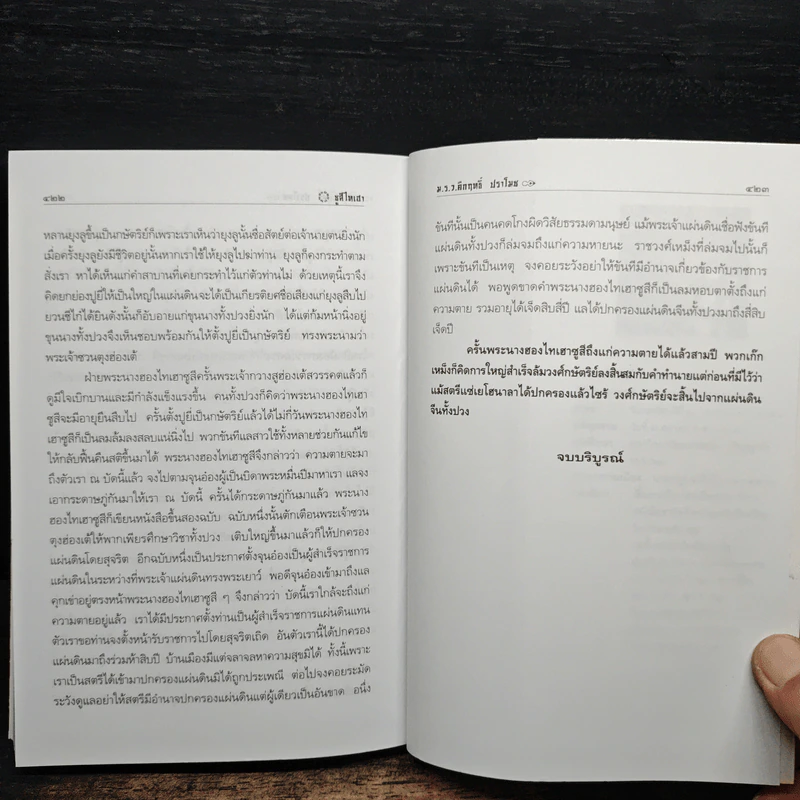 ๔๒๒
ซูสีไทเฮา
หลานยุงลูขึ้นเป็นกษัตริย์ก็เพราะเราเห็นว่ายุงลูนั้นซื่อสัตย์ต่อเจ้านายตนยิ่งนัก
เมื่อครั้งยุงลูยังมีชีวิตอยู่นั้นหากเราใช้ให้ยุงลูไปฆ่าท่าน ยุงลูก็คงกระทำตาม
สั่งเรา หาได้เห็นแก่คำสาบานที่เคยกระทำไว้แก่ตัวท่านไม่ ด้วยเหตุนี้เราจึง
คิดยกย่องปูยีให้เป็นใหญ่ในแผ่นดินจะได้เป็นเกียรติยศชื่อเสียงแก่ยุงลูสืบไป
ยวนซีไก๋ได้ยินดังนั้นก็อับอายแก่ขุนนางทั้งปวงยิ่งนัก ได้แต่ก้มหน้านิ่งอยู่
ขุนนางทั้งปวงจึงเห็นชอบพร้อมกันให้ตั้งปูยีเป็นกษัตริย์ ทรงพระนามว่า
พระเจ้าซวนตุงฮ่องเต้
ฝ่ายพระนางฮองไทเฮาซูสีครั้นพระเจ้ากวางสูฮ่องเต้สวรรคตแล้วก็
ดูมีใจเบิกบานและมีกำลังแข็งแรงขึ้น คนทั้งปวงก็คิดว่าพระนางฮองไทเฮา
ซูสีจะมีอายุยืนสืบไป ครั้นตั้งปูยีเป็นกษัตริย์แล้วได้ไม่กี่วันพระนางฮองไท
เฮาซูสีก็เป็นลมล้มลงสลบแน่นิ่งไป พวกขันทีแลสาวใช้ทั้งหลายช่วยกันแก้ไข
ให้กลับฟื้นคืนสติขึ้นมาได้ พระนางฮองไทเฮาซูสีจึงกล่าวว่า ความตายจะมา
ถึงตัวเรา ณ บัดนี้แล้ว จงไปตามจุนอ๋องผู้เป็นบิดาพระหมื่นปีมาหาเรา แลจง
เอากระดาษภู่กันมาให้เรา ณ บัดนี้ ครั้นได้กระดาษภู่กันมาแล้ว พระนาง
ฮองไทเฮาซูสีก็เขียนหนังสือขึ้นสองฉบับ ฉบับหนึ่งนั้นตักเตือนพระเจ้าซวน
ตุงฮ่องเต้ให้พากเพียรศึกษาวิชาทั้งปวง เติบใหญ่ขึ้นมาแล้วก็ให้ปกครอง
แผ่นดินโดยสุจริต อีกฉบับหนึ่งเป็นประกาศตั้งจุนอ๋องเป็นผู้สำเร็จราชการ
แผ่นดินในระหว่างที่พระเจ้าแผ่นดินทรงพระเยาว์ พอดีจุนอ๋องเข้ามาถึงแล
คุกเข่าอยู่ตรงหน้าพระนางฮองไทเฮาซูสี ๆ จึงกล่าวว่า บัดนี้เราใกล้จะถึงแก่
ความตายอยู่แล้ว เราได้มีประกาศตั้งท่านเป็นผู้สำเร็จราชการแผ่นดินแทน
ตัวเราขอท่านจงตั้งหน้ารับราชการไปโดยสุจริตเถิด อันตัวเรานี้ได้ปกครอง
แผ่นดินมาถึงร่วมห้าสิบปี บ้านเมืองมีแต่จลาจลหาความสุขมิได้ ทั้งนี้เพราะ
เราเป็นสตรีได้เข้ามาปกครองแผ่นดินมิได้ถูกประเพณี ต่อไปจงคอยระมัด
ระวังดูแลอย่าให้สตรีมีอำนาจปกครองแผ่นดินแต่ผู้เดียวเป็นอันขาด อนึ่ง
ม.ร.ว.คึกฤทธิ์ ปราโมช
๔๒๓
ขันทีนั้นเป็นคนคดโกงผิดวิสัยธรรมดามนุษย์ แม้พระเจ้าแผ่นดินเชื่อฟังขันที
แผ่นดินทั้งปวงก็ล่มจมถึงแก่ความหายนะ ราชวงศ์เหม็งที่ล่มจมไปนั้นก็
เพราะขันทีเป็นเหตุ จงคอยระวังอย่าให้ขันทีมีอำนาจเกี่ยวข้องกับราชการ
แผ่นดินได้ พอพูดขาดคำพระนางฮองไทเฮาซูสีก็เป็นลมหอบตาตั้งถึงแก่
ความตาย รวมอายุได้เจ็ดสิบสี่ปี แลได้ปกครองแผ่นดินจีนทั้งปวงมาถึงสี่สิบ
เจ็ดปี
ครั้นพระนางฮองไทเฮาซูสีถึงแก่ความตายได้แล้วสามปี พวกเก๊ก
เหม็งก็คิดการใหญ่สำเร็จล้มวงศ์กษัตริย์ลงสิ้นสมกับคำทำนายแต่ก่อนที่มีไว้ว่า
แม้สตรีแซ่เยโฮนาลาได้ปกครองแล้วไซร้ วงศ์กษัตริย์จะสิ้นไปจากแผ่นดิน
จีนทั้งปวง
จบบริบูรณ์